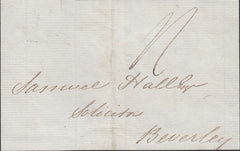 Samuel Hall Esqr
Solicitor
Beverley